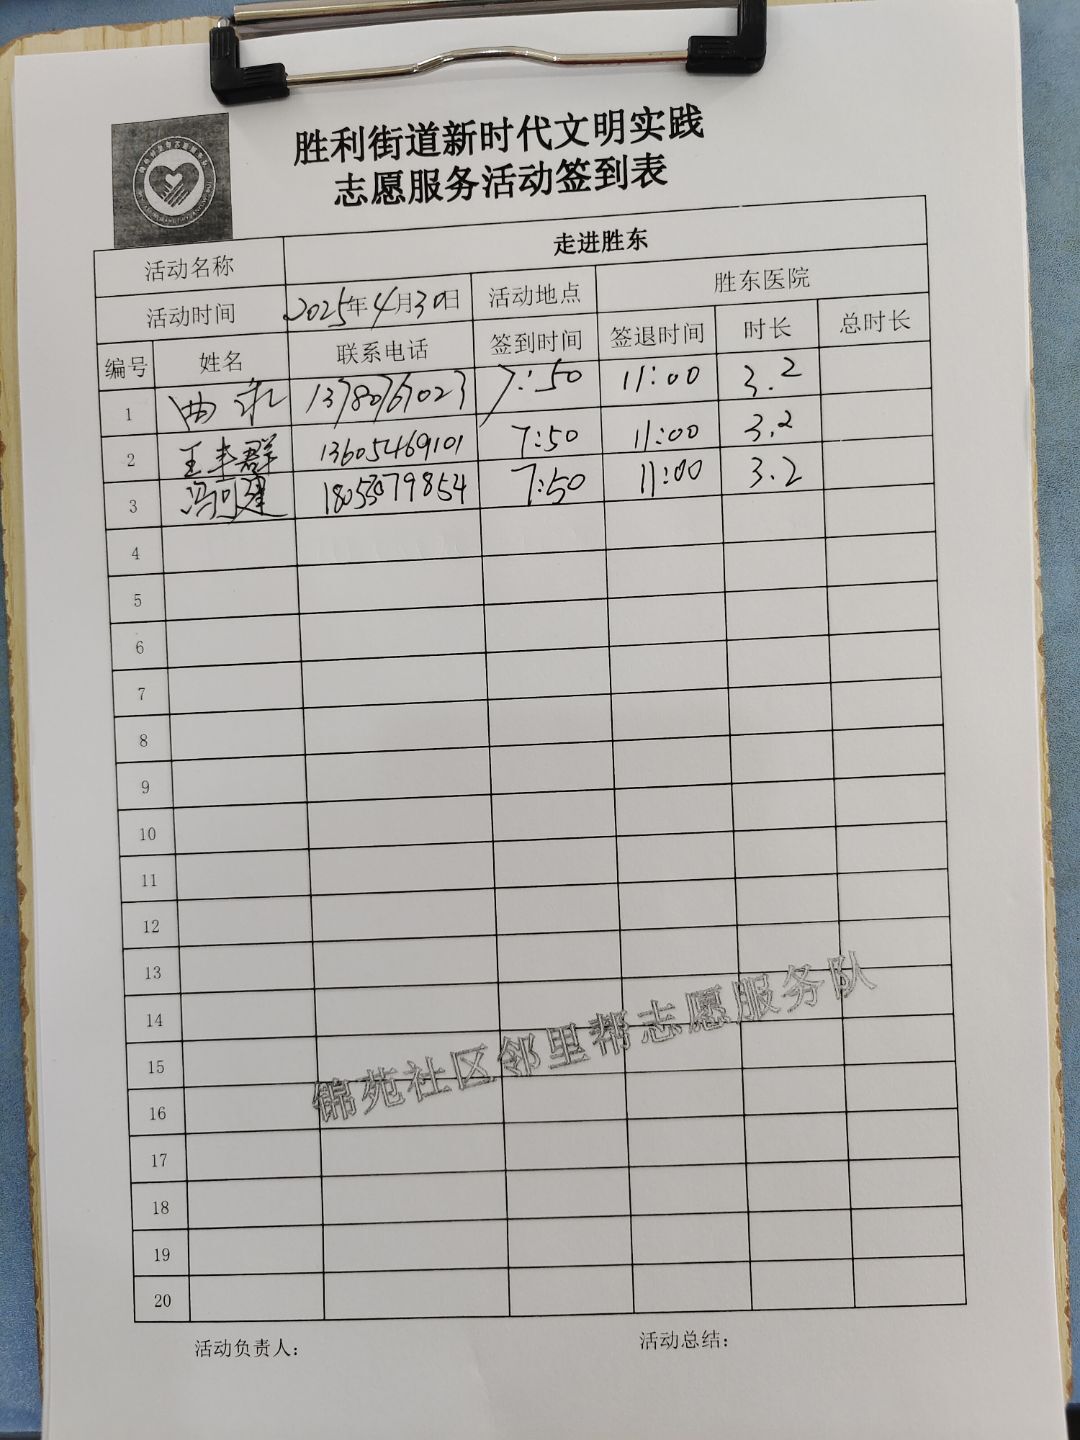 胜利街道新时代文明实践
志愿服务活动签到表
活动名称 走进胜东
活动时间 2025年4月30日 活动地点 胜东医院
编号 姓名 联系电话 签到时间 签退时间 时长 总时长
1 曲 7:50 11:00 3.2
2 王丰群 13605469101 7:50 11:00 3.2
3 冯可建 7:50 11:00 3.2
4
5
6
7
8
9
10
11
12
13
14
15
16
17
18
19
20
锦苑社区邻里帮志愿服务队
活动负责人: 活动总结: